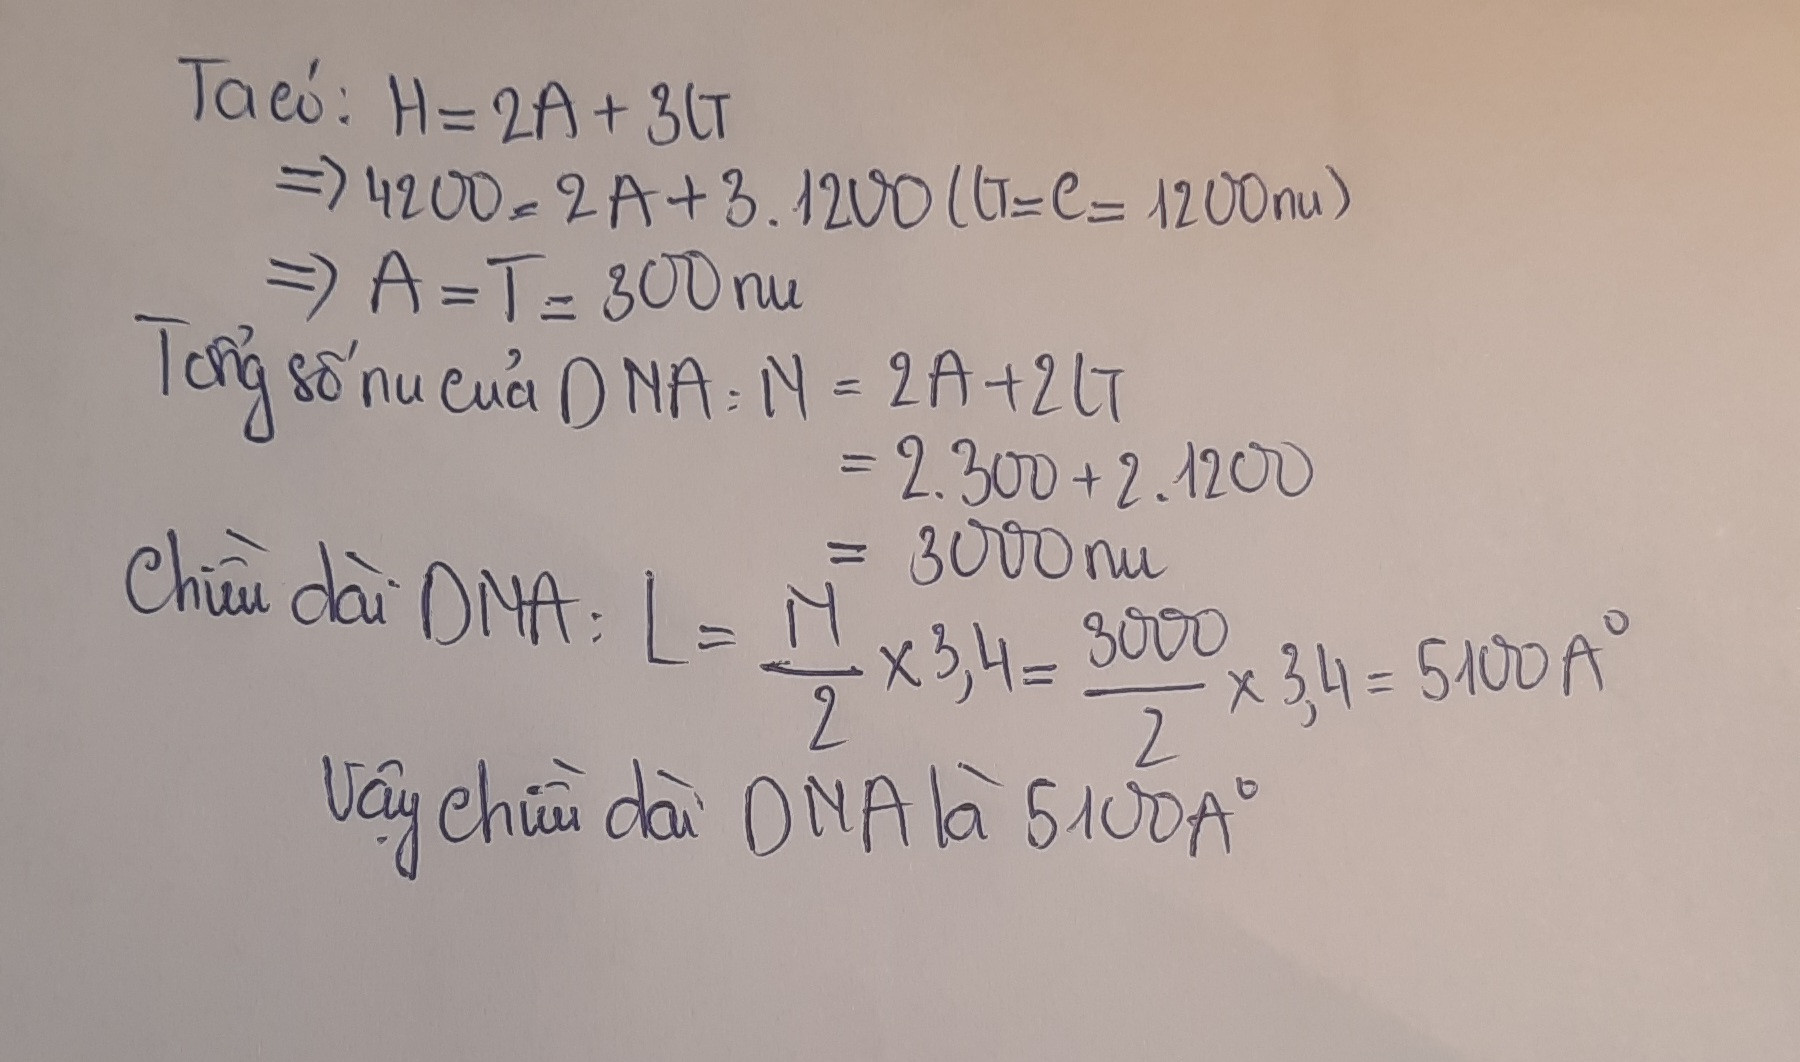 Ta có: H = 2A + 3G
=> 4200 = 2A + 3.1200 (G = C = 1200nu)
=> A = T = 300nu
Tổng số nu của DNA: N = 2A + 2G
= 2.300 + 2.1200
= 3000nu
Chiều dài DNA: L = N/2 x 3,4 = 3000/2 x 3,4 = 5100A°
Vậy chiều dài DNA là 5100A°